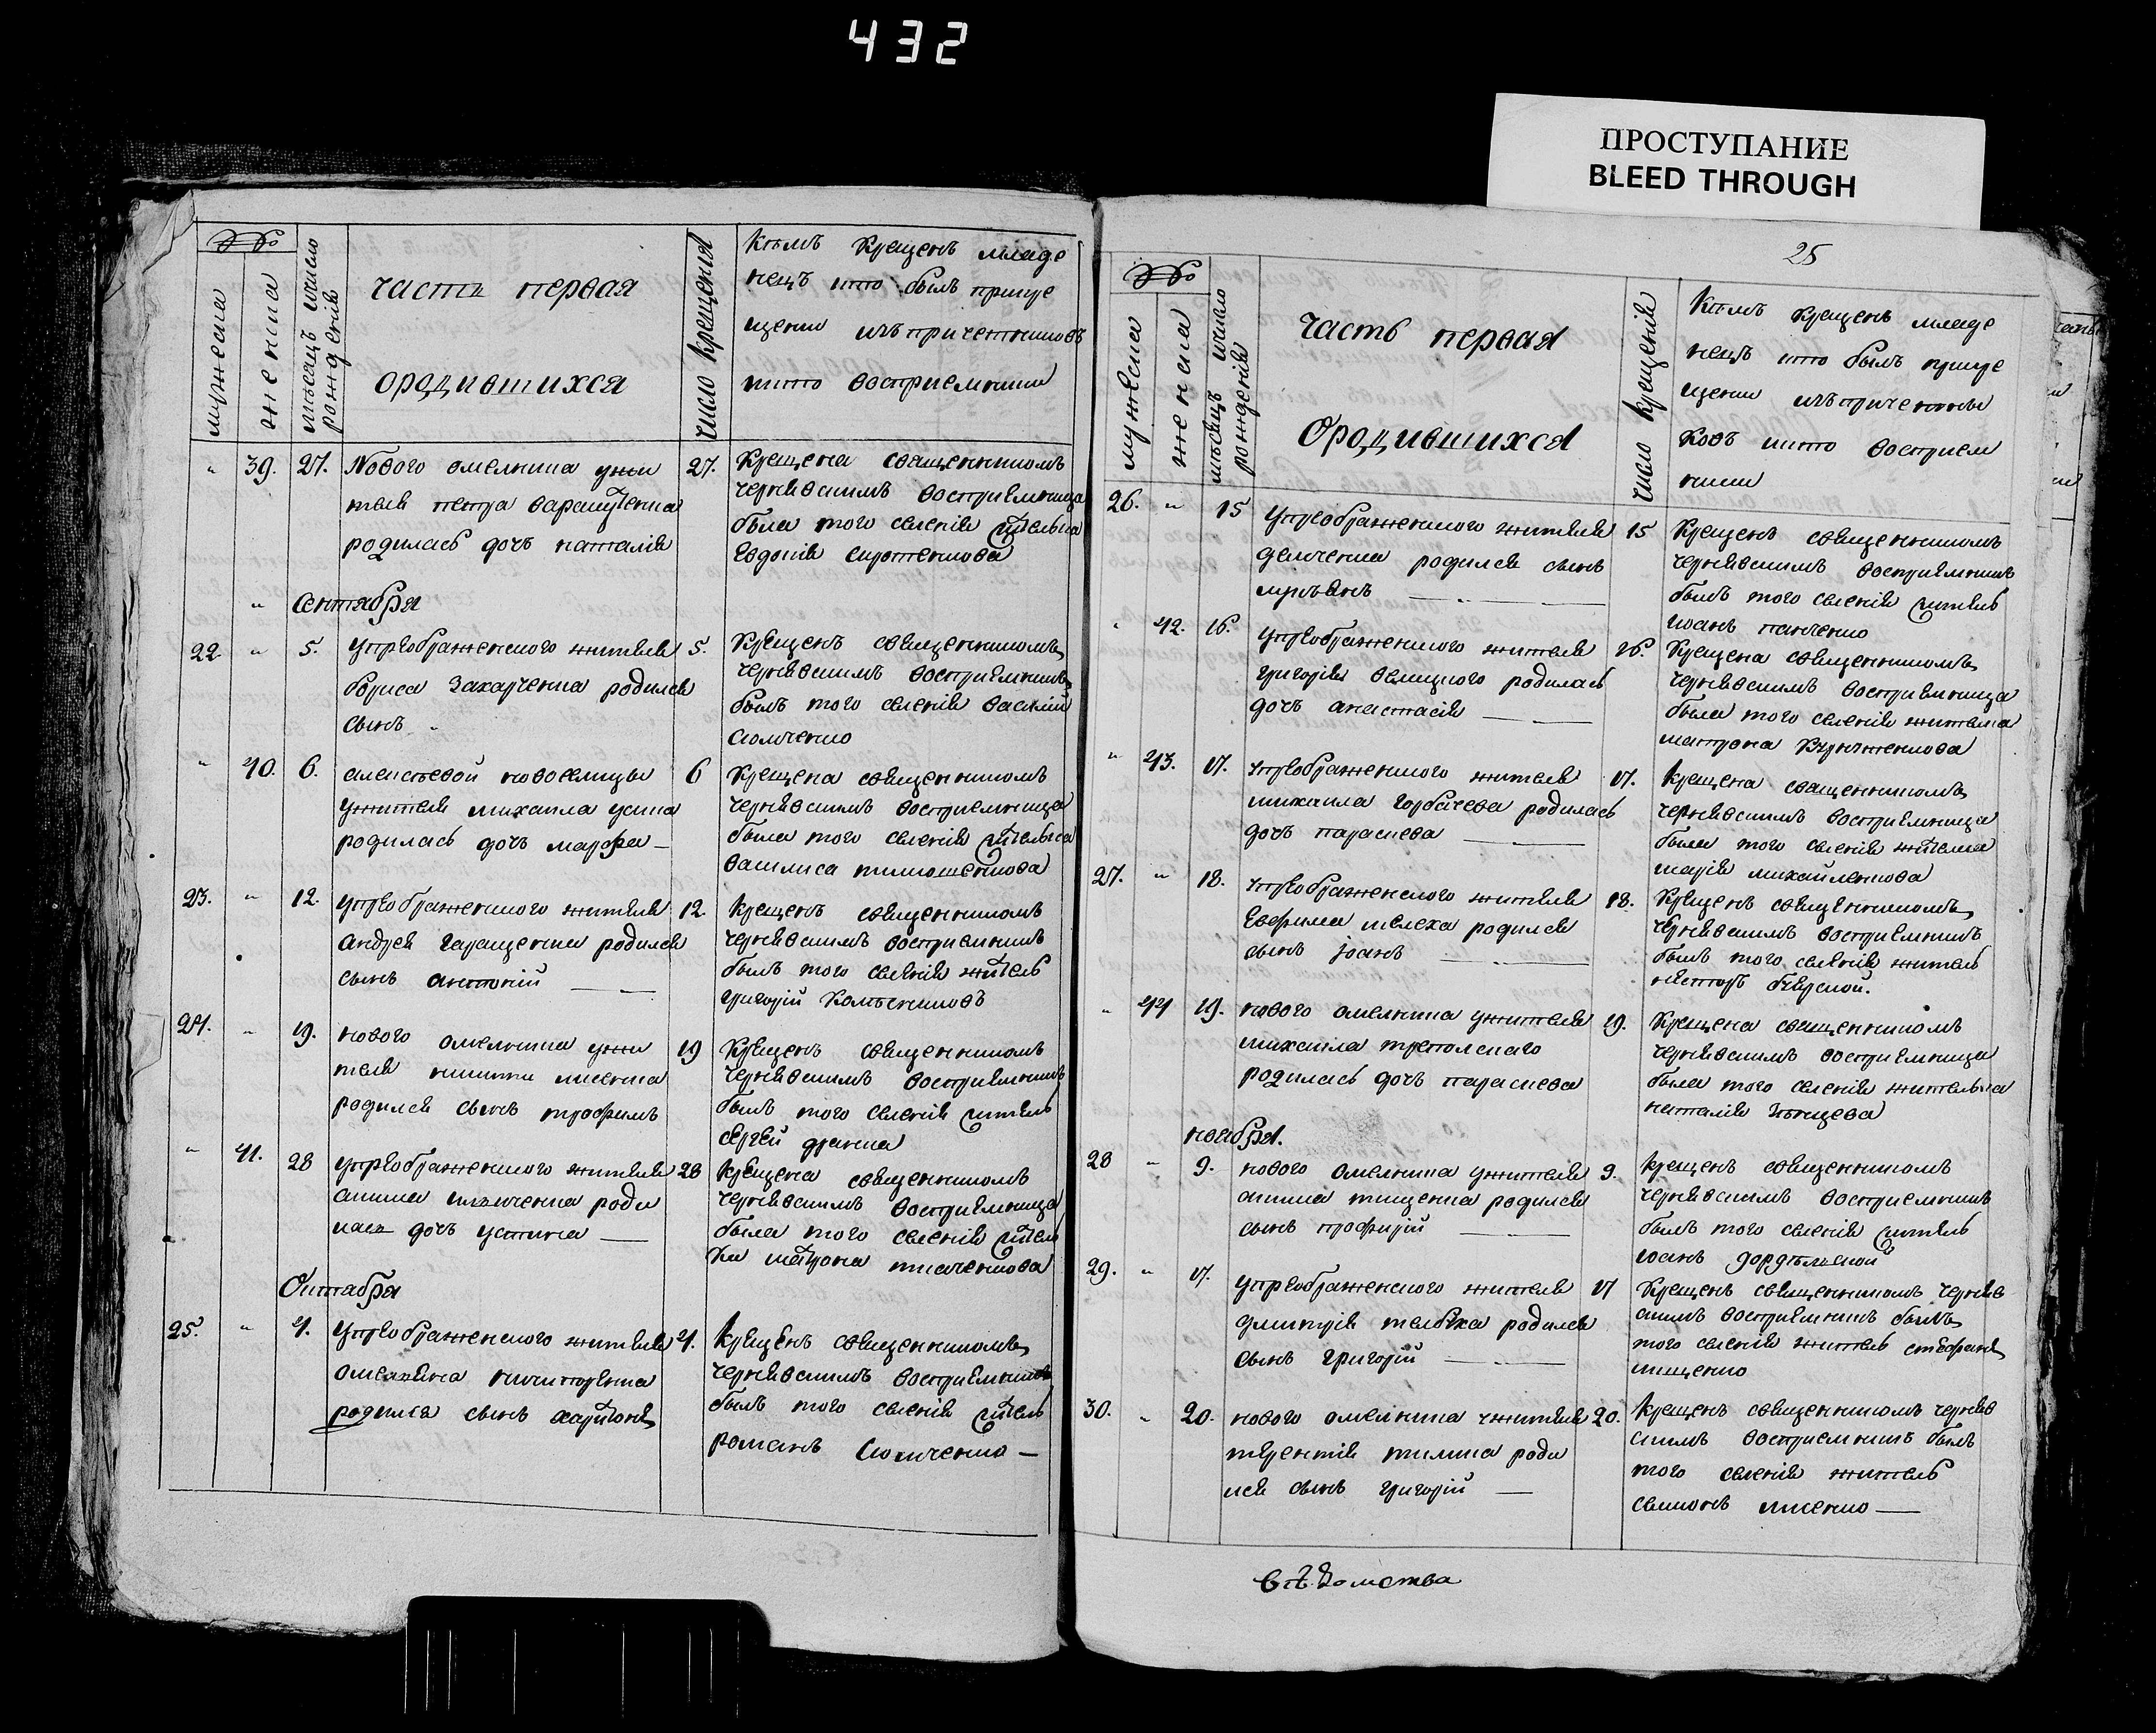 432
ПРОСТУПАНИЕ
BLEED THROUGH
№№
мужеска
женска
мѣсяцъ ичисло
рожденія
часть первая
ородившихся
число крещенія
Кѣмъ крещенъ младе
нецъ кто былъ прикре
щении изъпричетниковъ
икто восприемники
„ 39. 27. Нового омелника ужи
теля петра
родилась дочь наталія
27. Крещена священникомъ
чернявскимъ восприемница
была того селенія жителька
Евдокія сиротенкова
„ сентября
22 „ 5. упреображенского жителя
бориса Захарченка родился
сынъ
5. Крещенъ священникомъ
чернявскимъ восприемникъ
былъ того селенія василій
„ 40. 6. алексѣевой новоселицы
ужителя михаила усика
родилась дочь марфа
6 Крещена священникомъ
чернявскимъ восприемница
была того селенія жителька
василиса тимошенкова
23. „ 12. упреображенкого жителя
андрея геращенка родился
сынъ антоній
12. крещенъ священникомъ
чернявскимъ восприемникъ
былъ того селенія житель
григорій Колѣсниковъ
24. „ 19. нового омелника ужи
теля никиты лисенка
родился сынъ трофимъ
19 Крещенъ священникомъ
чернявскимъ восприемникъ
былъ того селенія житель
сергей
„ 41. 28 упреображенкого жителя
роди
лась дочь устина
28 Крещена священникомъ
чернявскимъ восприемница
была того селенія жител
ка матрона ткаченкова
Октября
25. „ 4. упреображенского жителя
омеляна никифоренка
родился сынъ харитонъ
4. крещенъ священникомъ
чернявскимъ восприемникъ
былъ того селенія житель
романъ
25
№№
мужеска
женска
мѣсяцъ ичисло
рожденія
часть первая
Ородившихся
число крещенія
Кѣмъ крещенъ младе
нецъ кто былъ прикре
щении изъпричетни
ковъ икто восприем
ники
26. „ 15 упреображенкого жителя
демченка родился сынъ
15 Крещенъ священникомъ
чернявскимъ восприемникъ
былъ того селенія житель
иоанъ панченко
„ 42. 16. упреображенкого жителя
григорія белицкого родилась
дочь анастасія
16. Крещена священникомъ
чернявскимъ восприемница
была того селенія жителка
матрона
„ 43. 17. упреображенкого жителя
михаила горбачева родилась
дочь параскева
17. крещена священникомъ
чернявскимъ восприемница
была того селенія жителка
марія михайленкова
27. „ 18. упреображенского жителя
Евфима мелеха родился
сынъ іоанъ
18. Крещенъ священникомъ
чернявскимъ восприемникъ
былъ того селенія житель
несторъ
„ 44 19. нового омелника ужителя
михаила трепольскаго
родилась дочь параскева
19. Крещена священникомъ
чернявскимъ восприемница
была того селенія жителька
наталія
ноября.
28 „ 9. нового омелника ужителя
акима тищенка родился
сынъ
9. крещенъ священникомъ
чернявскимъ восприемникъ
былъ того селенія житель
иоанъ
29. „ 17. упреображенского жителя
димитрія родился
сынъ григорій
17 Крещенъ священникомъ черняв
скимъ восприемникъ былъ
того селенія житель стефанъ
30. „ 20. нового омелника ужителя
терентія роди
лся сынъ григорій
20. крещенъ священникомъ черняв
скимъ восприемникъ былъ
того селенія житель
симонъ лисенко
вѣдомства